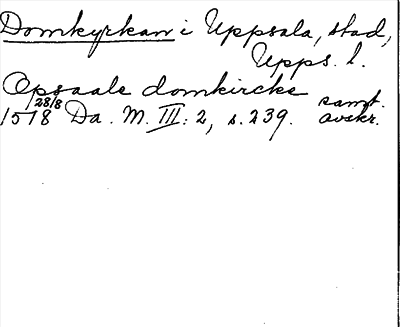 Domkyrkan i Uppsala, stad,
Upps. l.
Opsaale domkircke
1518 28/8 Da. M. III: 2, s. 239. samt. avskr.